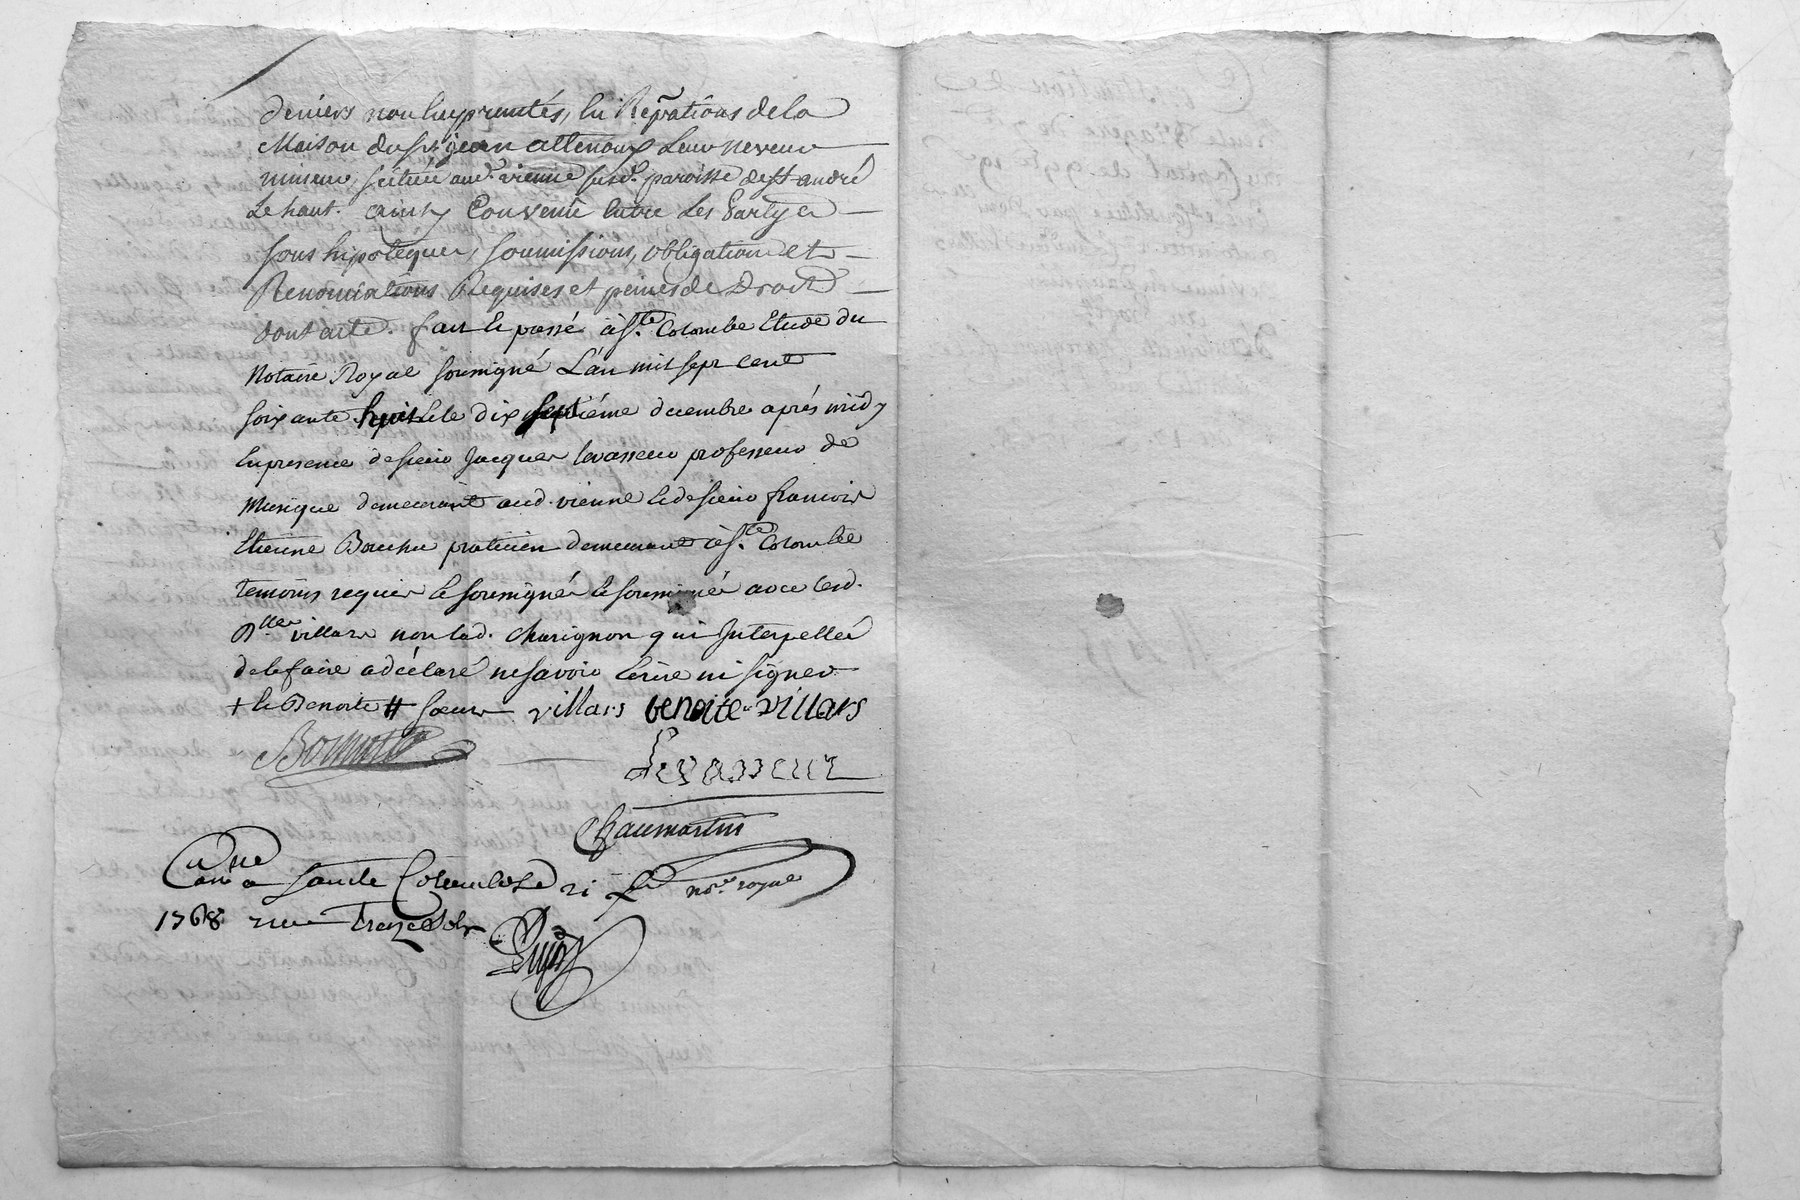 deniers non Empruntés, En Reparations de la
Maison du Sr. jean attenoux Leur neveu
mineur, scituée aud. vienne susd. paroisse de st andré
Le haut. ainsy Convenu Entre Les Partyes
sous hipoteques, soumissions, obligations et
Renonciations Requises et peines de Droit
dont acte. fait Et passé à Ste. Colombe Etude du
Notaire Royal soussigné L'an mil sept cent
soixante huit Et le dix septième decembre après midy
En presence de sieur Jacques levasseur professeur de
Musique demeurant aud. vienne Et de sieur francois
Etienne praticien demeurant à Ste. Colombe
temoins requis Et soussignés avec lesd.
Dlles villars non lad. Charignon qui Interpellée
de le faire a déclaré ne savoir Ecrire ni signer
+ Et Benoite # soeurs villars benoite villars
Levasseur
Chaumartin
a sainte Colombe Le 21 Xbre nore. royal
1768 recu Treize sols